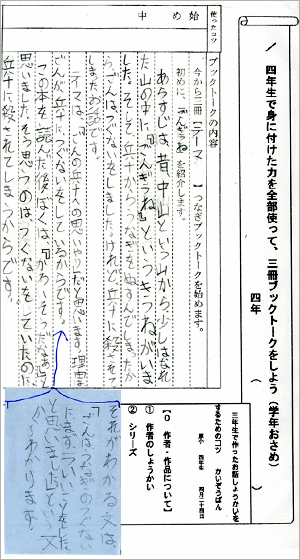 四年生で身に付けた力を全部使って、三冊ブックトークをしよう（学年おさめ）
四年（　　　　　）
三年生で作ったお話しょうかいを
するためのコツ　かいぞうばん
四年生　四月二十四日
【○　作者・作品について】
①　作者のしょうかい
②　シリーズ
使ったコツ
ブックトークの内容
始め
中
今から三冊【テーマ　　　】つなぎブックトークを始めます。
初めに、ごんぎつねを紹介します。
あらすじは、昔、中山という山から少しはなれ
た山の中に「ごんぎつね」というきつねがいま
した。そして兵十からうなぎをぬすんでしまったか
らごんはつぐないをしました。けれど、兵十に殺されて
しまったお話です。
テーマは、「ごんの兵十への思いやり」だと思います。理由は
ごんが兵十につぐないをしているからです。
この本を読んだ後ぼくは、「かわいそうだなあ」と
思いました。そう思うのはつぐないをしていたのに
兵十に殺されてしまうからです。
それがわかる文は
「ごんは、うなぎのつぐない
に、まず一ついいことをした
と思いました」という文
からわかります。